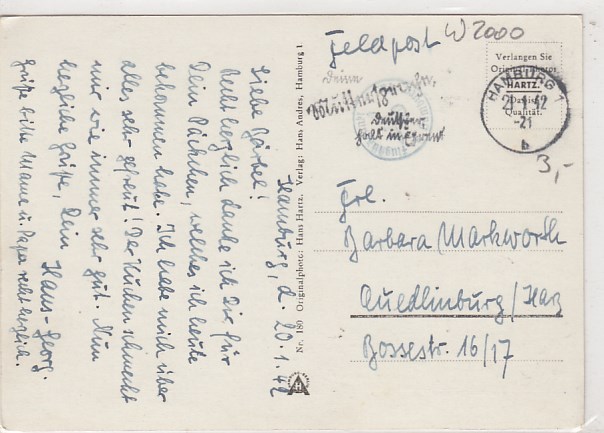 Hamburg, d. 20.1.42
Liebe Bärbel!
Recht herzlich danke ich Dir für
Dein Päckchen, welches ich heute
bekommen habe. Ich habe mich über
alles sehr gefreut! Der Kuchen schmeckt
mir wie immer sehr gut. Nun
herzliche Grüße, Dein
Hans-Georg.
Grüße bitte Mama u. Papa recht herzlich.
Nr. 189 Originalphoto: Hans Hartz. Verlag: Hans Andres, Hamburg 1
Feldpost
W 2000
Verlangen Sie
Originalphotos
HARTZ.
Qualität.
HAMBURG 1
21.1.42
-21
b
3,-
Deine
Muttersprache,
Deutscher,
halt in Ehren!
Frl.
Barbara Markworth
Quedlinburg/Harz
Bossestr. 16/17